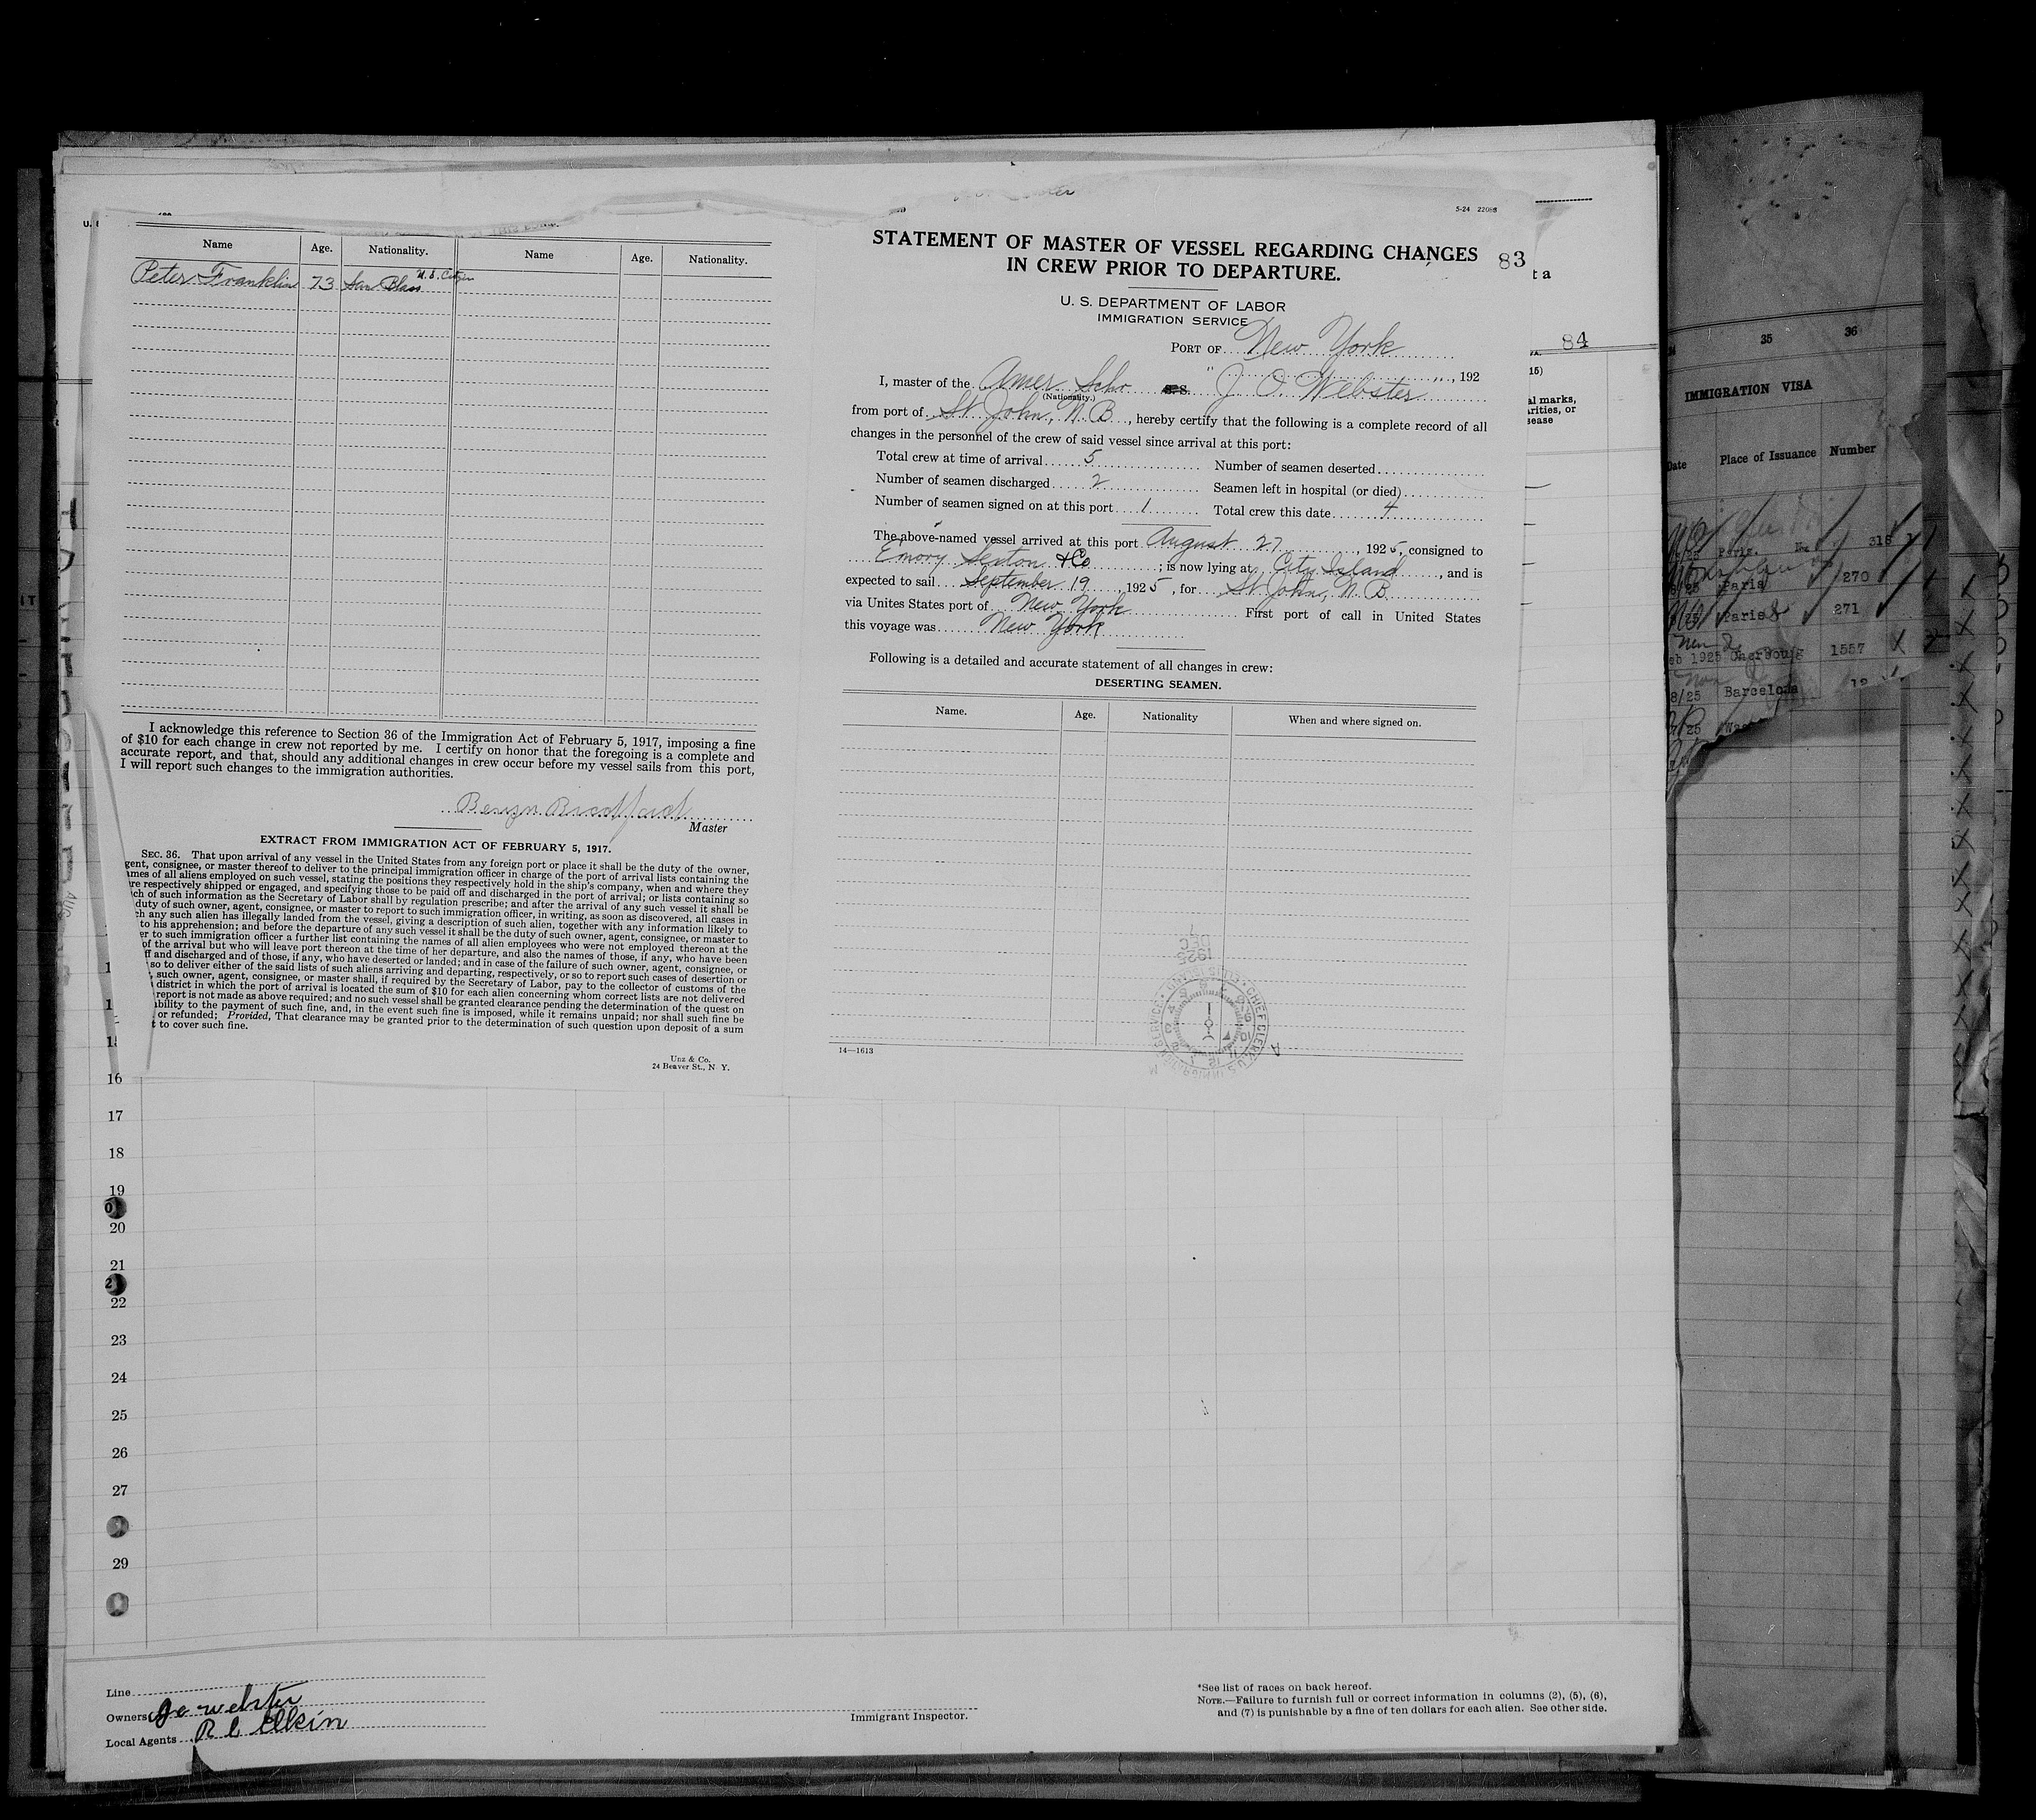 5-24 22098
Name Age. Nationality. Name Age. Nationality.
Peter Franklin 73 San Blass U.S. Citizen
I acknowledge this reference to Section 36 of the Immigration Act of February 5, 1917, imposing a fine
of $10 for each change in crew not reported by me. I certify on honor that the foregoing is a complete and
accurate report, and that, should any additional changes in crew occur before my vessel sails from this port,
I will report such changes to the immigration authorities.
Master
EXTRACT FROM IMMIGRATION ACT OF FEBRUARY 5, 1917.
SEC. 36. That upon arrival of any vessel in the United States from any foreign port or place it shall be the duty of the owner,
gent, consignee, or master thereof to deliver to the principal immigration officer in charge of the port of arrival lists containing the
ames of all aliens employed on such vessel, stating the positions they respectively hold in the ship's company, when and where they
re respectively shipped or engaged, and specifying those to be paid off and discharged in the port of arrival; or lists containing so
ch of such information as the Secretary of Labor shall by regulation prescribe; and after the arrival of any such vessel it shall be
duty of such owner, agent, consignee, or master to report to such immigration officer, in writing, as soon as discovered, all cases in
ch any such alien has illegally landed from the vessel, giving a description of such alien, together with any information likely to
to his apprehension; and before the departure of any such vessel it shall be the duty of such owner, agent, consignee, or master to
er to such immigration officer a further list containing the names of all alien employees who were not employed thereon at the
of the arrival but who will leave port thereon at the time of her departure, and also the names of those, if any, who have been
ff and discharged and of those, if any, who have deserted or landed; and in case of the failure of such owner, agent, consignee, or
so to deliver either of the said lists of such aliens arriving and departing, respectively, or so to report such cases of desertion or
, such owner, agent, consignee, or master shall, if required by the Secretary of Labor, pay to the collector of customs of the
district in which the port of arrival is located the sum of $10 for each alien concerning whom correct lists are not delivered
report is not made as above required; and no such vessel shall be granted clearance pending the determination of the quest on
ability to the payment of such fine, and, in the event such fine is imposed, while it remains unpaid; nor shall such fine be
or refunded; Provided, That clearance may be granted prior to the determination of such question upon deposit of a sum
t to cover such fine.
Unz & Co.
24 Beaver St., N Y.
STATEMENT OF MASTER OF VESSEL REGARDING CHANGES
IN CREW PRIOR TO DEPARTURE.
83
U. S. DEPARTMENT OF LABOR
IMMIGRATION SERVICE
PORT OF New York
, 192
I, master of the Amer Schr S.S. J. O. Webster
(Nationality.)
from port of St John, N.B., hereby certify that the following is a complete record of all
changes in the personnel of the crew of said vessel since arrival at this port:
Total crew at time of arrival 5 Number of seamen deserted
Number of seamen discharged 2 Seamen left in hospital (or died)
Number of seamen signed on at this port 1 Total crew this date 4
The above-named vessel arrived at this port August 27, 1925, consigned to
Emory Sexton & Co; is now lying at City Island, and is
expected to sail September 19, 1925, for St John, N.B.
via Unites States port of New York First port of call in United States
this voyage was New York
Following is a detailed and accurate statement of all changes in crew:
DESERTING SEAMEN.
Name. Age. Nationality When and where signed on.
1925
DEC
7
CHIEF CLERK U.S. IMMIGRATION SERVICE
14—1613
t a
84
15)
al marks,
rities, or
sease
35 36
IMMIGRATION VISA
Date Place of Issuance Number
Paris. 318
Paris 270
Paris 271
1925 Cherbourg 1557
8/25 Barcelona
16
17
18
19
20
21
22
23
24
25
26
27
29
Line
Owners J O Webster
Local Agents R L Elkin
Immigrant Inspector.
*See list of races on back hereof.
NOTE.—Failure to furnish full or correct information in columns (2), (5), (6),
and (7) is punishable by a fine of ten dollars for each alien. See other side.